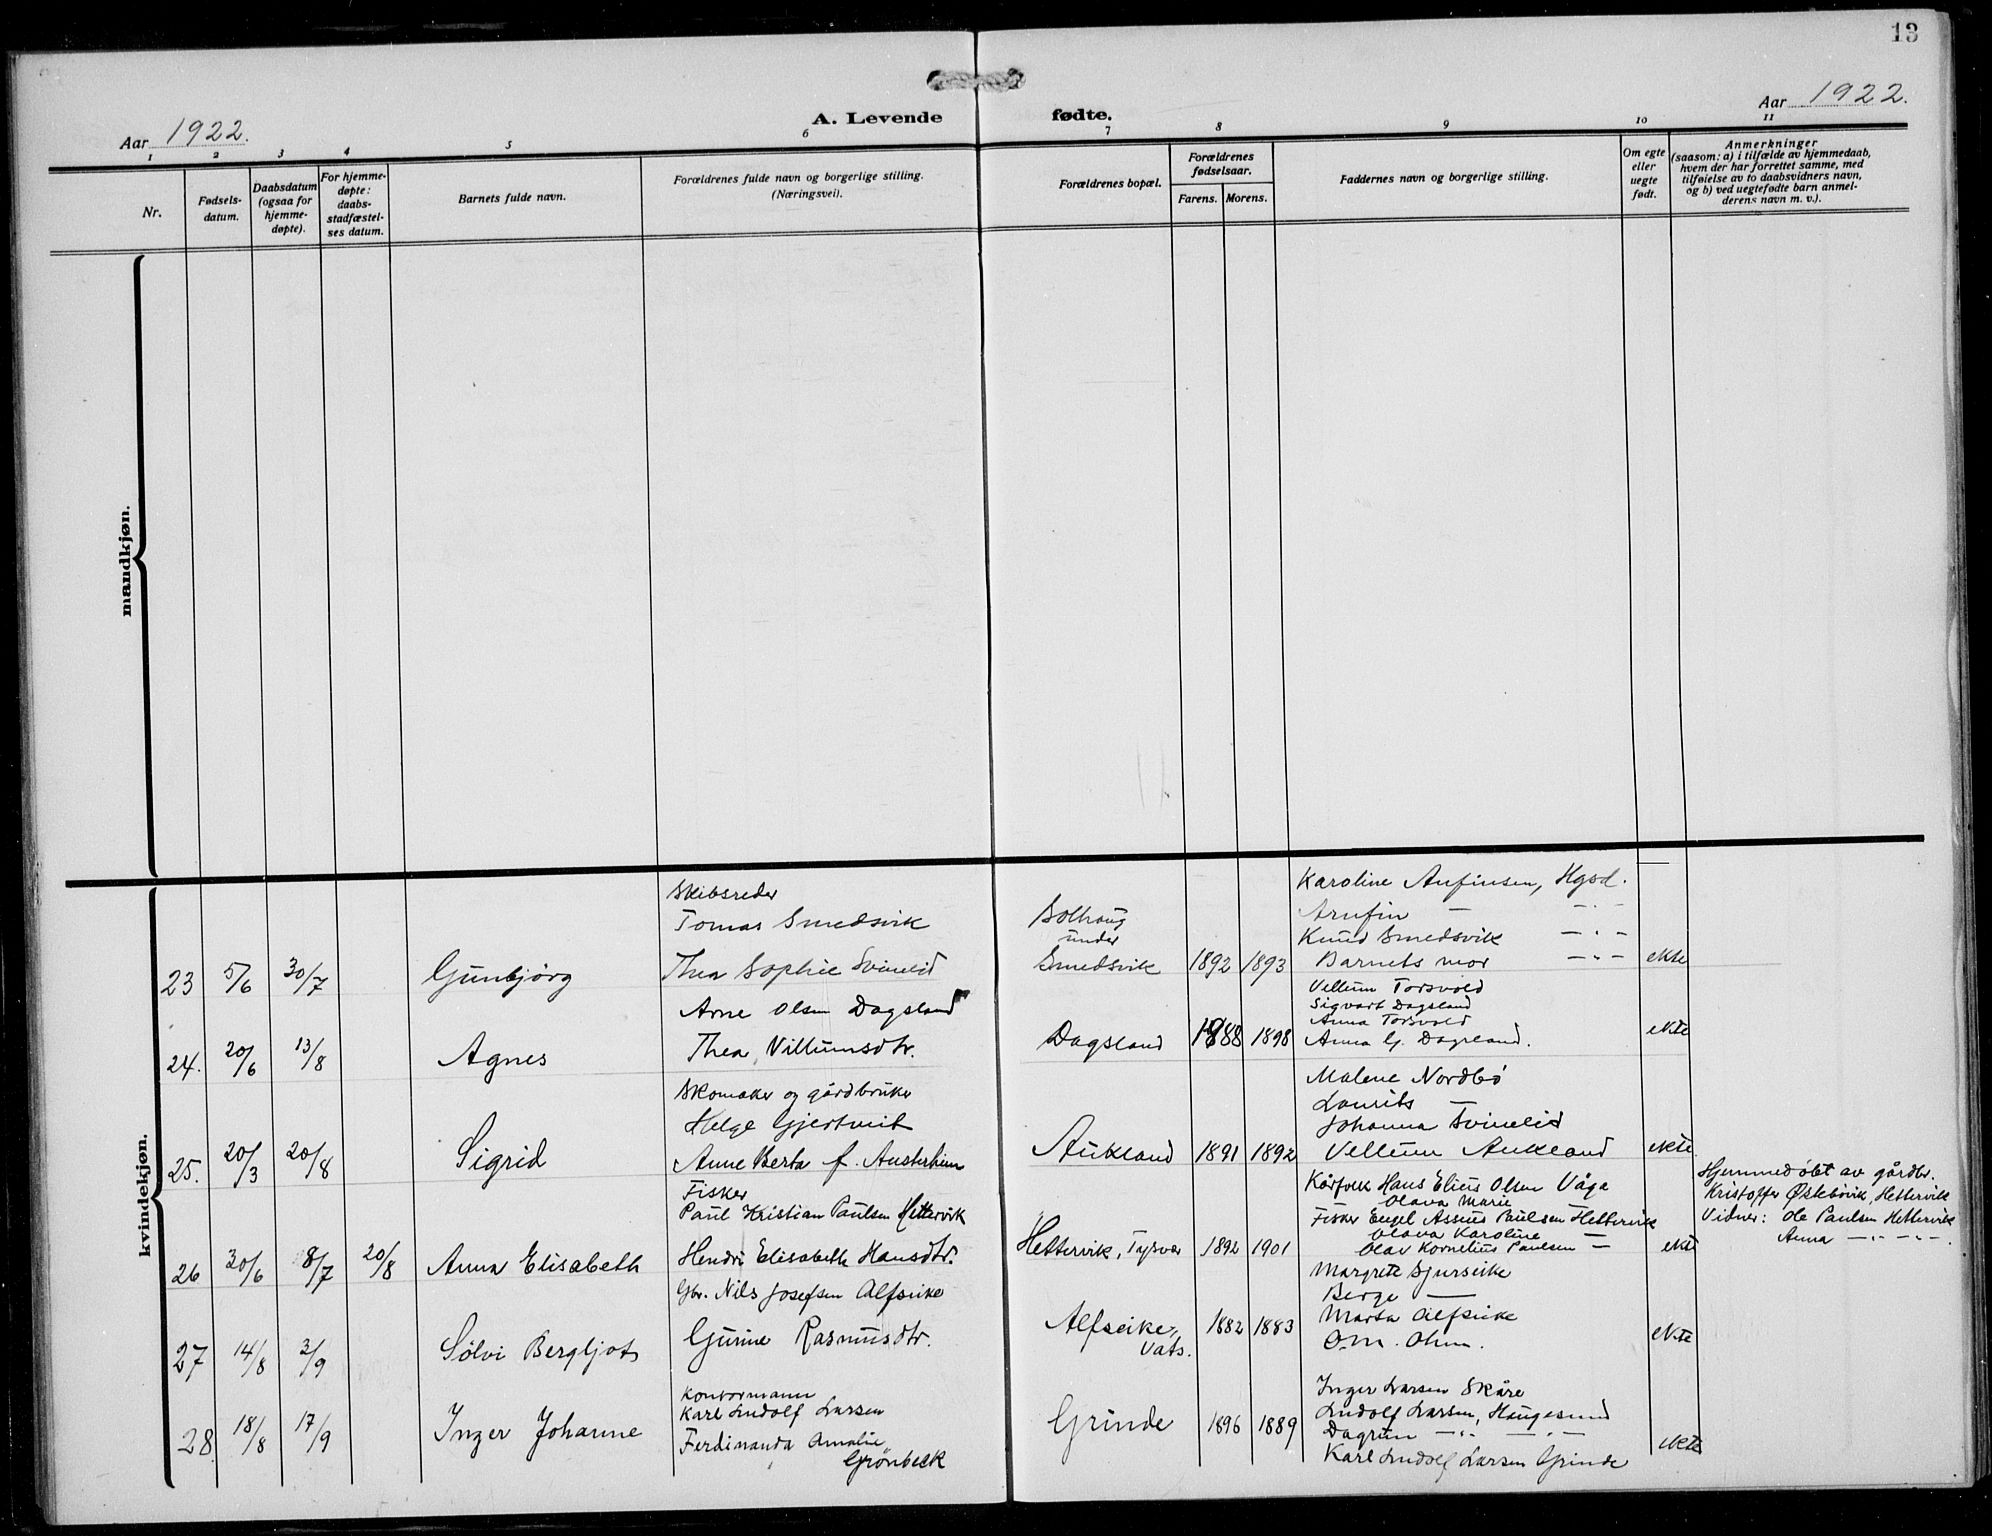 13
Aar 1922.
A. Levende fødte.
Aar 1922.
1 2 3 4 5 6 7 8 9 10 11
Nr.
Fødsels-
datum.
Daabsdatum
(ogsaa for
hjemme-
døpte).
For hjemme-
døpte:
daabs-
stadfæstel-
ses datum.
Barnets fulde navn.
Forældrenes fulde navn og borgerlige stilling.
(Næringsvei).
Forældrenes bopæl.
Forældrenes
fødselsaar.
Farens. Morens.
Faddernes navn og borgerlige stilling.
Om egte
eller
uegte
født.
Anmerkninger
(saasom: a) i tilfælde av hjemmedaab,
hvem der har forrettet samme, med
tilføielse av to daabsvidners navn,
og b) ved uegtefødte barn anmel-
derens navn m. v.).
mandkjøn.
kvindekjøn.
23 5/6 30/7 Gunbjørg
Skibsreder
Tomas Smedsvik
Thea Sophie Svinelid
Bolhaug
under
Smedsvik 1892 1893
Karoline Anfinsen, Hgsd.
Arnfin — —"—
Knud Smedsvik —"—
Barnets mor —"—
ekte
24. 20/6 13/8 Agnes
Arne Olsen Dagsland
Thea Villumsdtr.
Dagsland 1888 1898
Vellum Torsvold
Sigvart Dagsland
Anna Torsvold
Anna G. Dagsland.
ekte
25. 20/3 20/8 Sigrid
Skomaker og gårdbruker
Helge Gjertveit
Anne Berta f. Austerheim
Aukland 1891 1892
Malene Nordbø
Laurits
Johanna Svinelid
Vellum Aukland
ekte
26 30/6 8/7 20/8 Anna Elisabeth
Fisker
Paul Kristian Paulsen Hettervik
Hendri Elisabeth Hansdtr.
Hettervik, Tysvær 1892 1901
Kårfolk Hans Elius Olsen Våga
Olava Marie
Fisker Engel Assius Paulsen Hettervik
Olava Karoline —
Olav Kornelius Paulsen —
ekte
Hjemmedøbt av gårdbr.
Kristoffer Østebøvik, Hettervik
Vidner: Ole Paulsen Hettervik
Anna —"— —"—.
27 14/8 3/9 Sølvi Bergljot
Gbr. Nils Josefsen Alfseike
Gurine Rasmusdtr.
Alfseike,
Vats. 1882 1883
Margrete Djurseike
Berge —
Marta Alfseike
O.M. Ohm.
ekte
28. 18/8 17/9 Inger Johanne
Kontormann
Karl Ludolf Larsen
Ferdinanda Amalie
Grønbeck
Grinde 1896 1889
Inger Larsen Skåre
Ludolf Larsen, Haugesund
Dagrun —"— —"—
Karl Ludolf Larsen Grinde
ekte